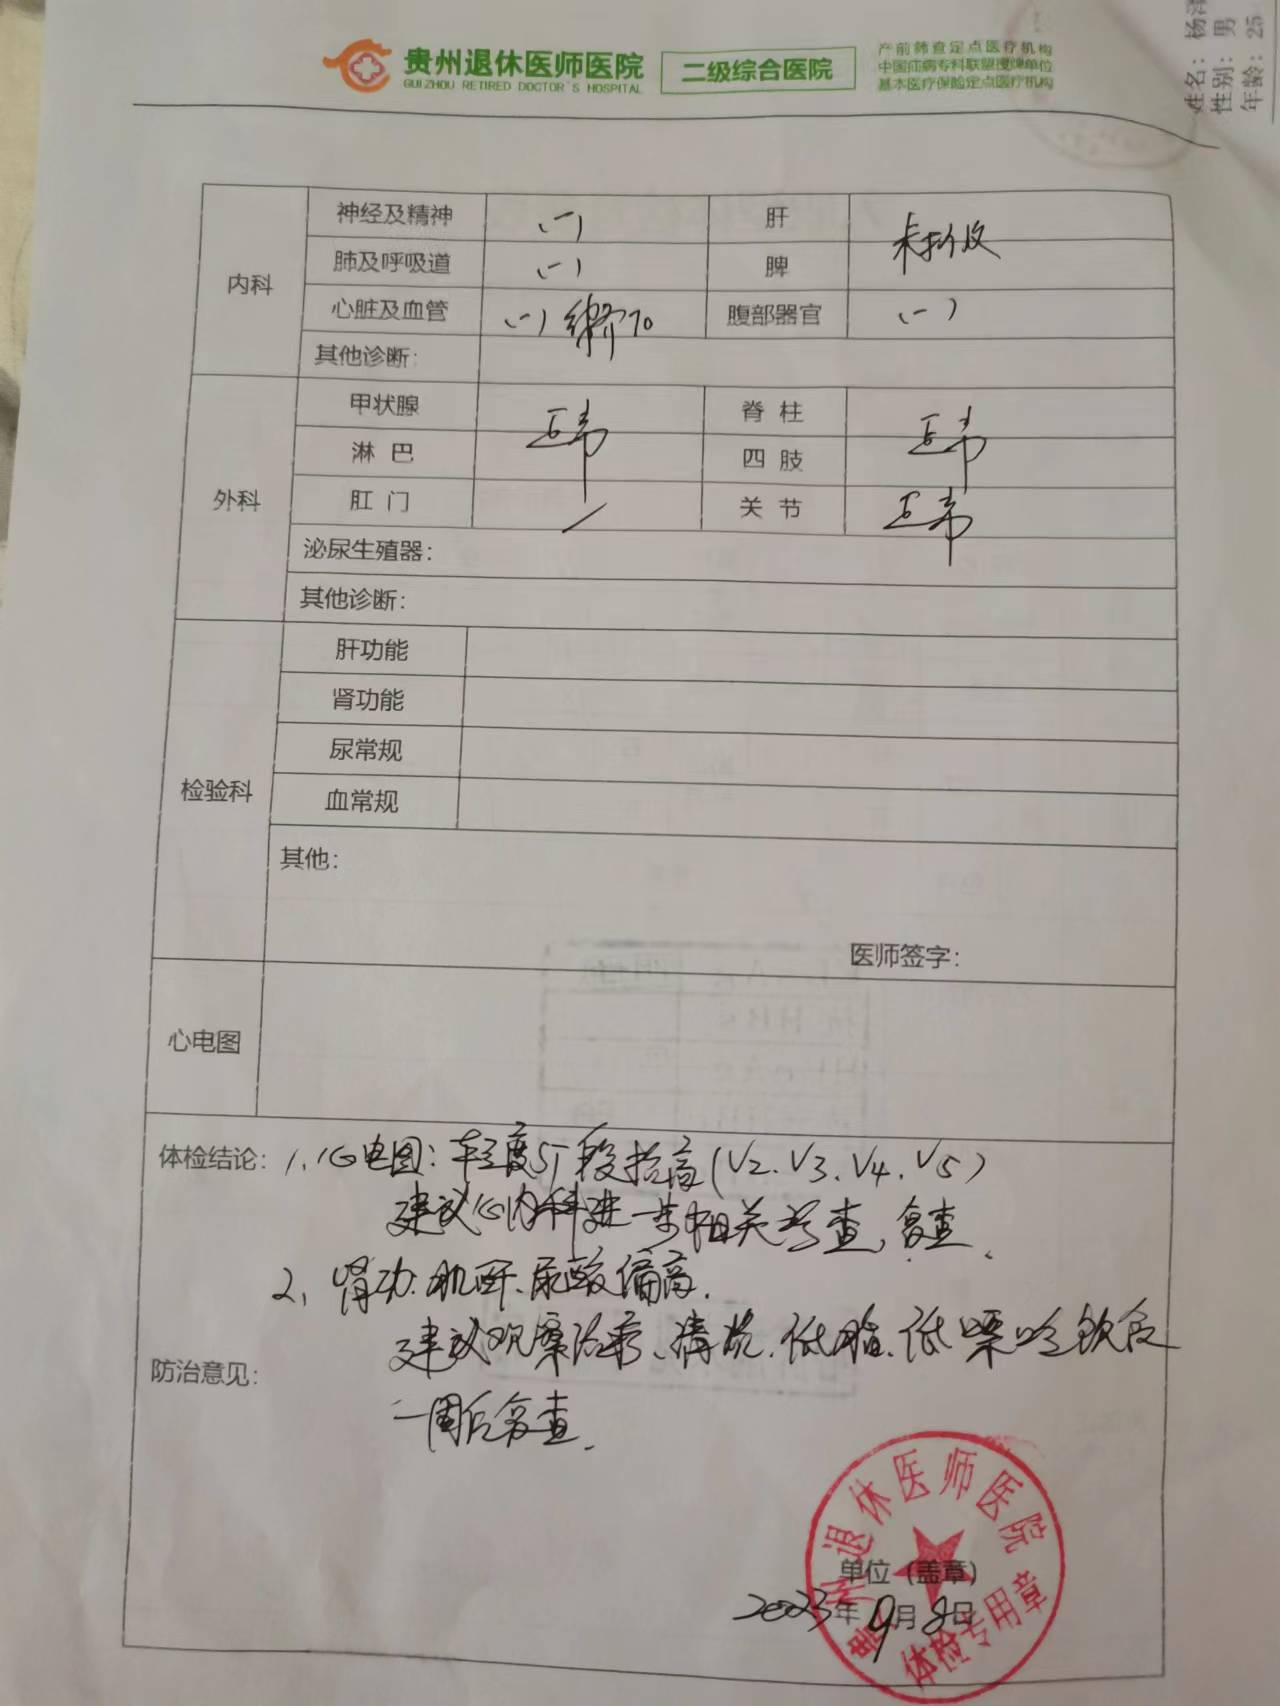 贵州退休医师医院
GUIZHOU RETIRED DOCTOR'S HOSPITAL
二级综合医院
产前筛查定点医疗机构
中国疝病专科联盟授牌单位
基本医疗保险定点医疗机构
姓名：杨
性别：男
年龄：25
内科
神经及精神 (一) 肝 未扪及
肺及呼吸道 (一) 脾
心脏及血管 (一) 70 腹部器官 (一)
其他诊断:
外科
甲状腺 正常 脊柱 正常
淋巴 四肢
肛门 / 关节 正常
泌尿生殖器:
其他诊断:
检验科
肝功能
肾功能
尿常规
血常规
其他:
医师签字:
心电图
体检结论: 1、心电图: 轻度ST段抬高(V2、V3、V4、V5)
建议心内科进一步相关检查，复查、
2、肾功、肌酐、尿酸偏高、
建议观察治疗、清淡、低脂、低嘌呤饮食
防治意见:
一周后复查、
贵州退休医师医院
体检专用章
单位（盖章）
2023年9月8日